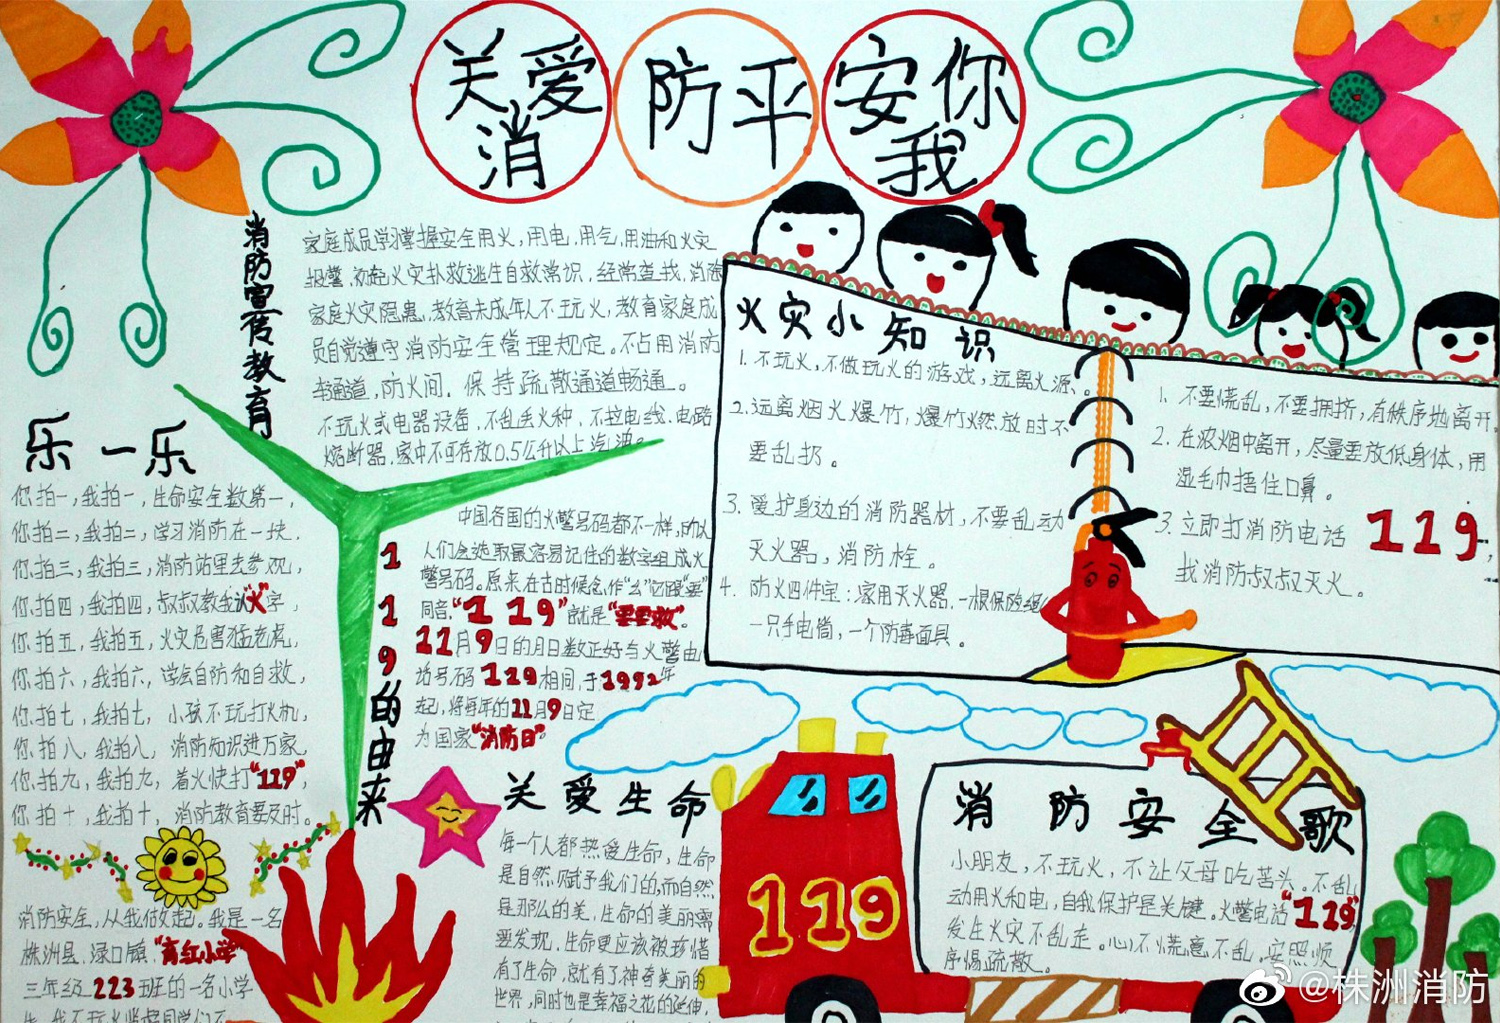 关爱
消
防平
安你
我
消防宣传教育
家庭成员学习掌握安全用火,用电,用气,用油和火灾
报警,初起火灾扑救逃生自救常识,经常查找,消除
家庭火灾隐患,教育未成年人不玩火,教育家庭成
员自觉遵守消防安全管理规定。不占用消防
车通道,防火间.保持疏散通道畅通。
不玩火或电器设备,不乱丢火种,不接电线.电路
熔断器.家中不可存放0.5公升以上汽油。
乐一乐
你拍一,我拍一,生命安全数第一,
你拍二,我拍二,学习消防在一块,
你拍三,我拍三,消防站里去参观,
你拍四,我拍四,叔叔教我认“火”字,
你拍五,我拍五,火灾危害猛老虎,
你拍六,我拍六,学会自防和自救,
你拍七,我拍七,小孩不玩打火机,
你拍八,我拍八,消防知识进万家,
你拍九,我拍九,着火快打“119”,
你拍十,我拍十,消防教育要及时。
消防安全,从我做起。我是一名
株洲县.渌口镇.“育红小学”
三年级223班的一名小学
119的由来
中国各国的火警号码都不一样,的以
人们会选取最容易记住的数字组成火
警号码。原来在古时候念作“幺”它跟“要”
同音,“119”就是“要要救”。
11月9日的月日数正好与火警电
话号码119相同,于1992年
起,将每年的11月9日定
为国家“消防日”
关爱生命
每一个人都热爱生命,生命
是自然.赋予我们的,而自然
是那么的美,生命的美丽需
要发现,生命更应该被珍惜
有了生命,就有了神奇美丽的
世界,同时也是幸福之花的延伸,
火灾小知识
1.不玩火,不做玩火的游戏,远离火源。
2.远离烟火爆竹,爆竹燃放时不
要乱扔。
3.爱护身边的消防器材,不要乱动
灭火器,消防栓。
4.防火四件宝:家用灭火器.一根保险绳
一只手电筒,一个防毒面具。
1.不要慌乱,不要拥挤,有秩序地离开.
2.在浓烟中离开,尽量要放低身体,用
湿毛巾捂住口鼻。
3.立即打消防电话119,
找消防叔叔灭火。
119
消防安全歌
小朋友,不玩火,不让父母吃苦头。不乱
动用火和电,自我保护是关键。火警电话“119”
发生火灾不乱走。心不慌意不乱,安照顺
序惕疏散。
@株洲消防